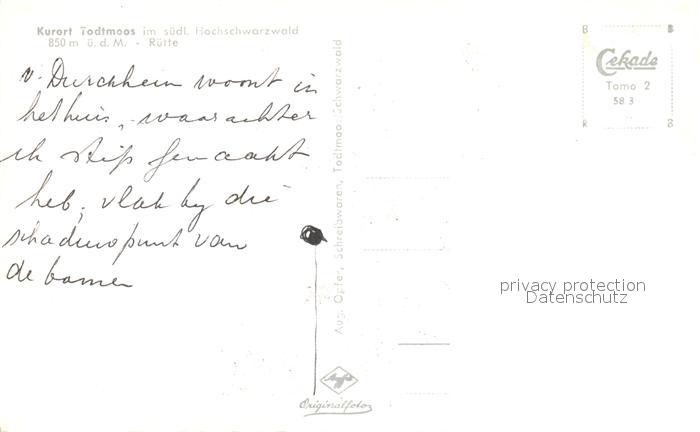 Kurort Todtmoos im südl. Hochschwarzwald
850 m ü. d. M. - Rütte
v. Durckheim woont in
het huis, waarachter
ik stip gemaakt
heb, vlak by die
schaduwpunt van
de bomen
Aug. Opfer, Schreibwaren, Todtmoos/Schwarzwald
Cekade
Tomo 2
58 3
privacy protection
Datenschutz
Agfa
Originalfoto